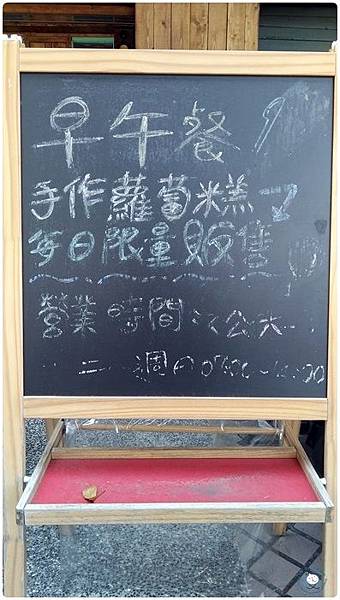 早午餐
手作蘿蔔糕
每日限量販售
營業時間:公休一
二~週日07:00~